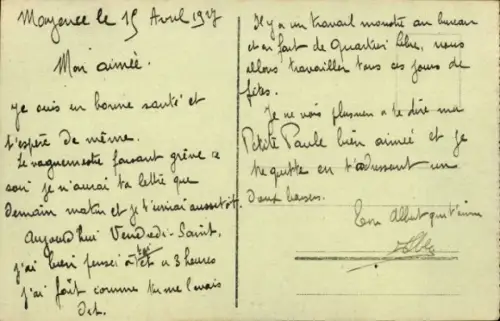 Mayence le 15 Avril 1927
Mon aimée.
Je suis en bonne santé et
t'espère de même.
Le vaguemestre faisant grève ce
soir je n'aurai ta lettre que
demain matin et je t'écrirai aussitôt.
Aujourd'hui Vendredi-Saint,
j'ai bien pensé à toi à 3 heures
j'ai fait comme tu me l'avais
dit.
Il y a un travail monstre au bureau
et en fait de Quartier libre, nous
allons travailler tous ces jours de
fêtes.
Je ne vois plus rien à te dire ma
Petite Paule bien aimée et je
te quitte en t'adressant un
doux baiser.
Ton Albert qui t'aime